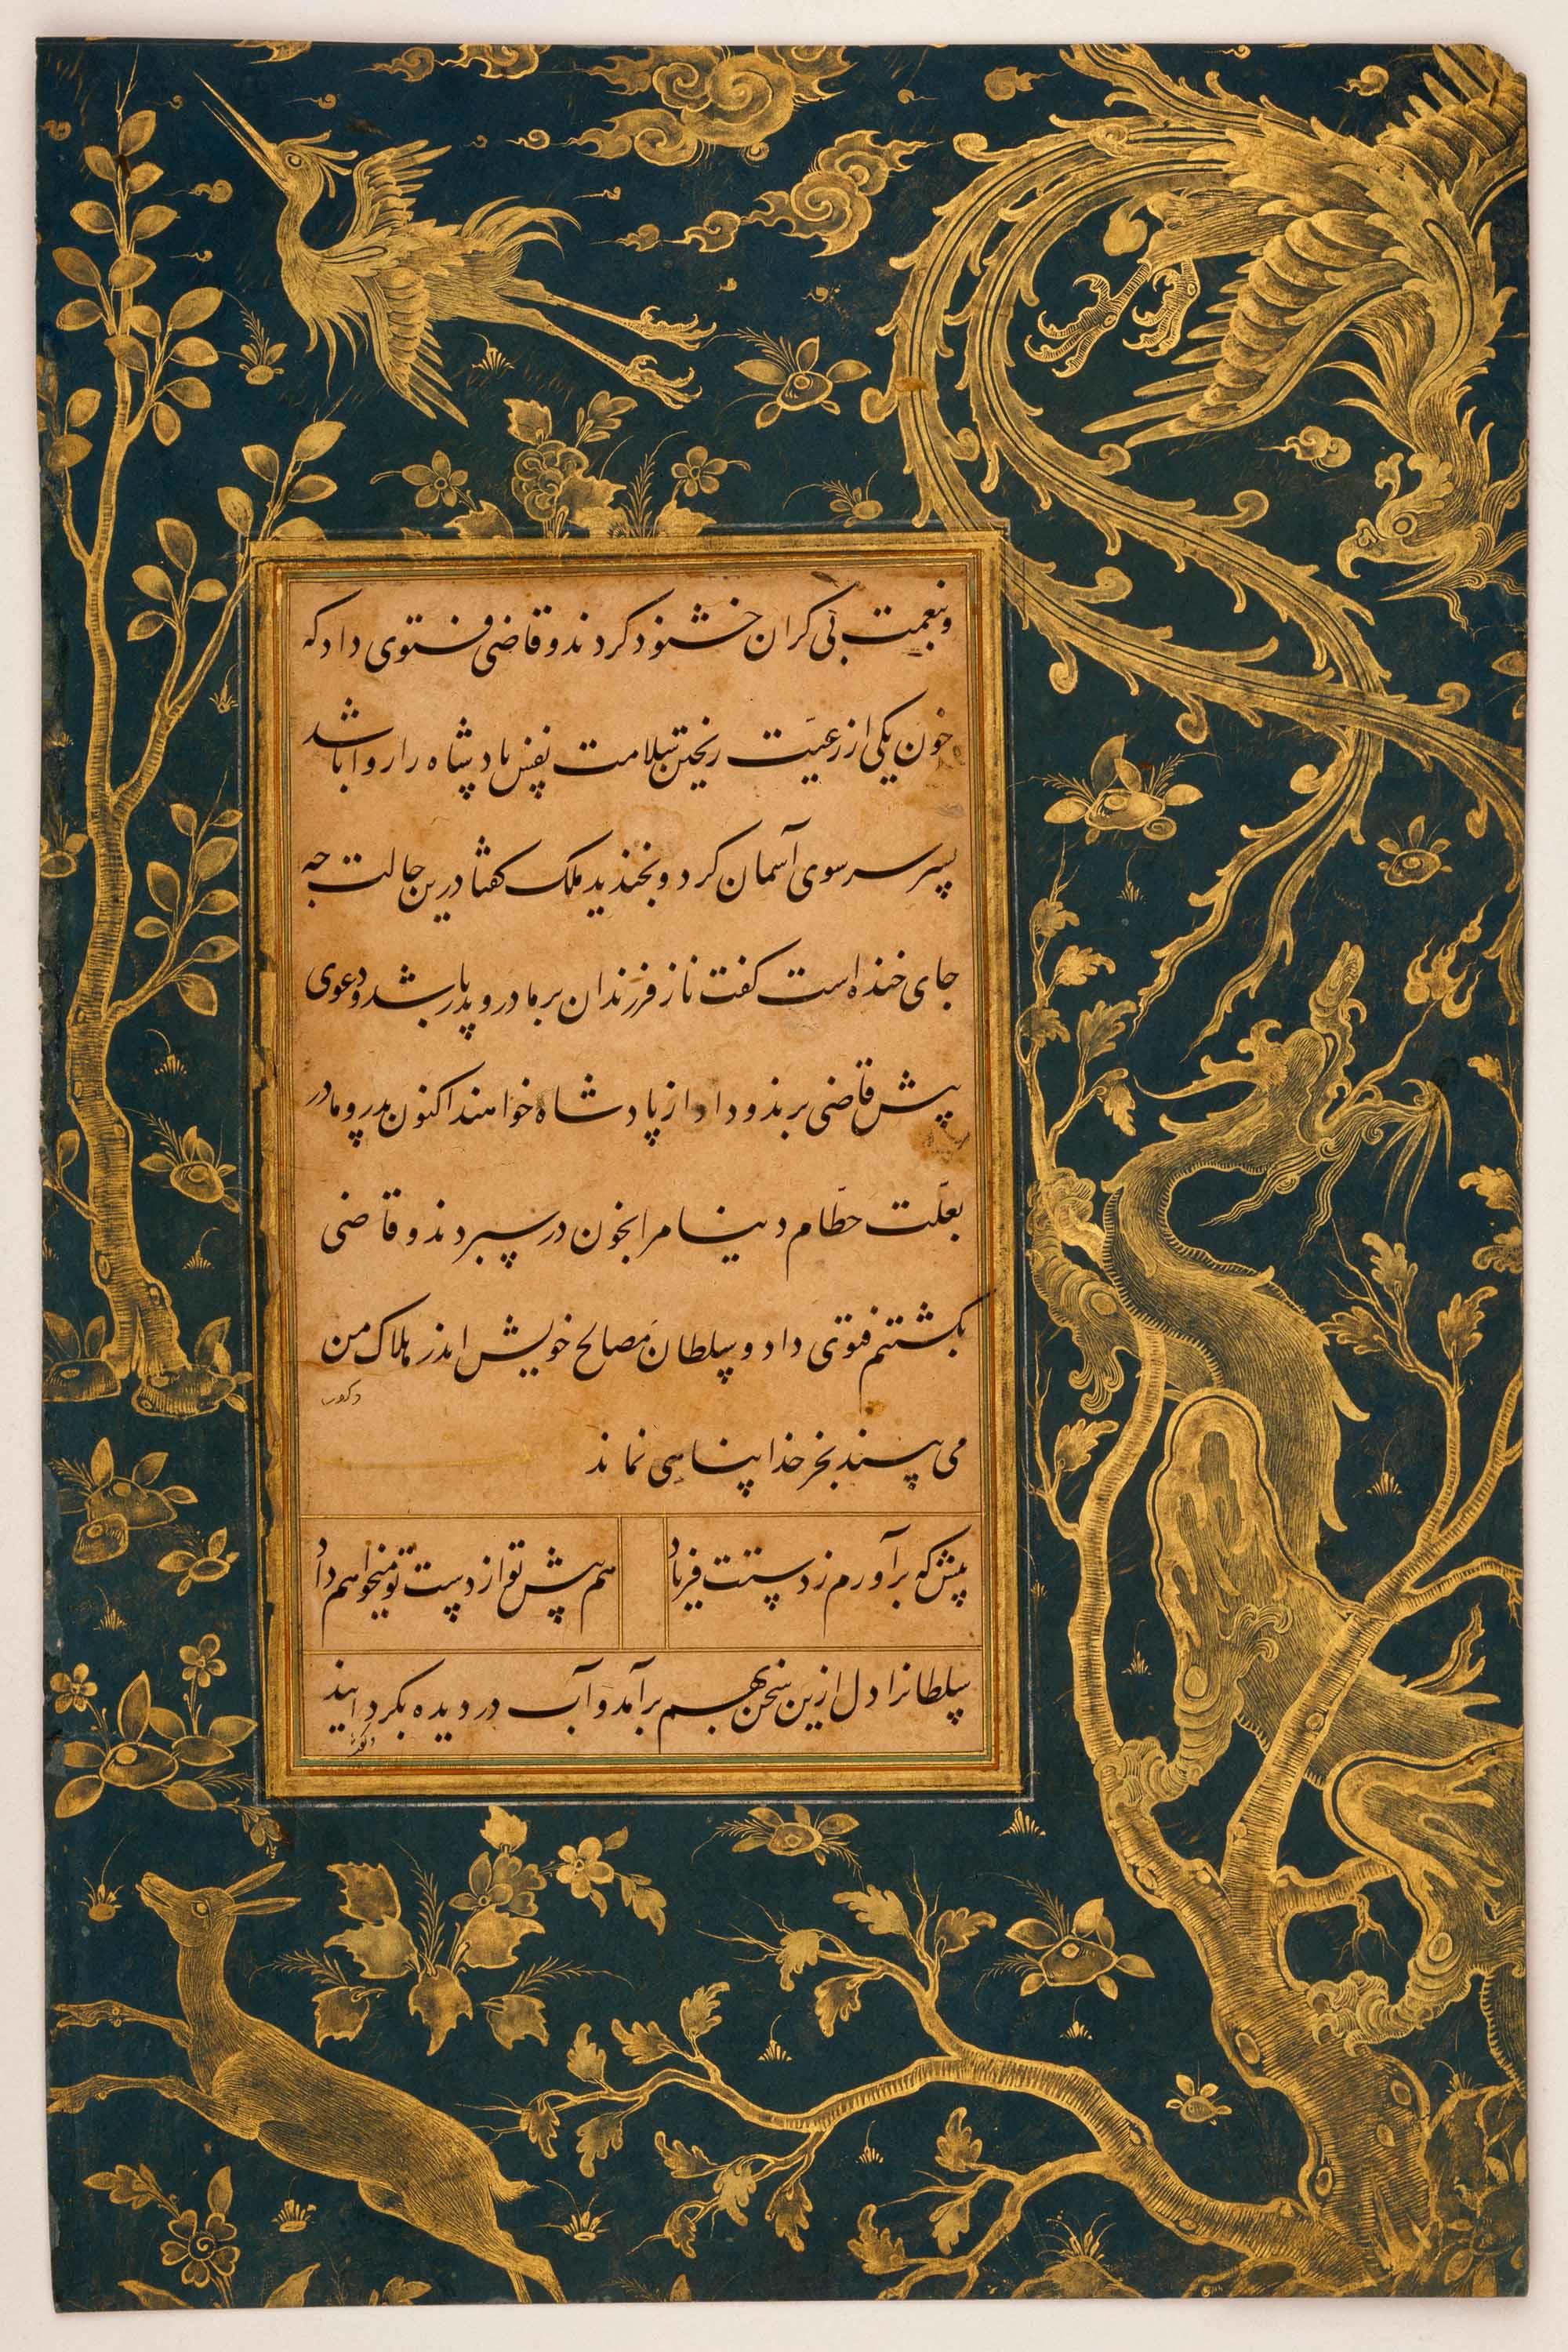 و بنعمت بی کران خشنود کردند و قاضی فتوی داد که
خون یکی از رعیت ریختن سلامت نفس پادشاه را روا باشد
پسر سر سوی آسمان کرد و بخندید ملک گفتا درین حالت چه
جای خنده است گفت ناز فرزندان بر مادر و پدر باشد و دعوی
پیش قاضی برند و داد از پادشاه خواهند اکنون پدر و مادر
بعلّت حطام دنیا مرا بخون در سپردند و قاضی
بکشتنم فتوی داد و سلطان مصالح خویش اندر هلاک من
می پسند بجز خدا پناهی نماند
پیش که برآورم ز دستت فریاد
هم پیش تو از دست تو میخواهم داد
سلطانرا دل ازین سخن بهم برآمد و آب در دیده بگردانید
و گفت